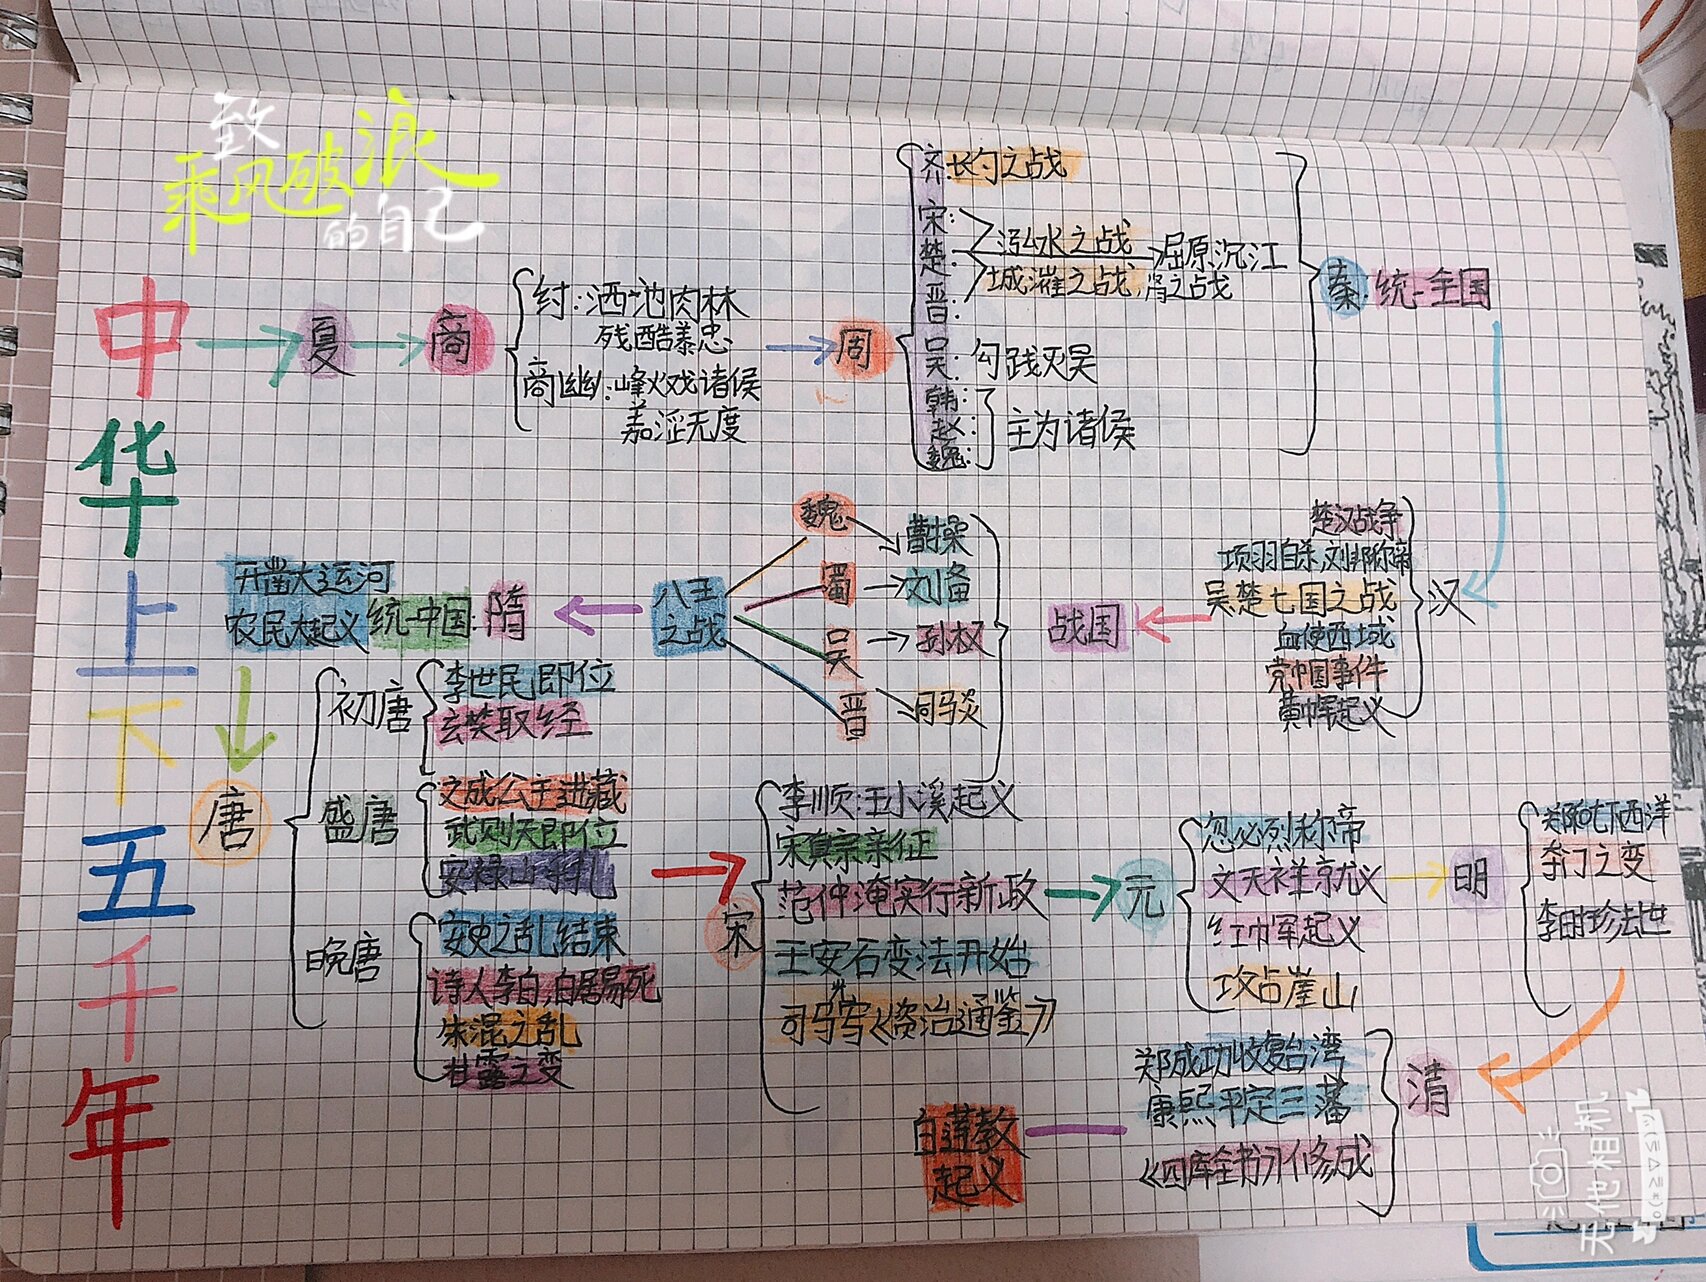 致
乘风破浪
的自己
中华上下五千年
夏
商
纣:酒池肉林
残酷暴忠
商幽:峰火戏诸侯
荒淫无度
周
齐:长勺之战
宋:
楚:
晋:
泓水之战
屈原沉江
城濮之战,淆之战
吴:勾践灭吴
韩:
赵:
魏:
主为诸侯
秦:统一全国
楚汉战争
项羽自杀,刘邦称帝
吴楚七国之战
血使西域
党中国事件
黄巾军起义
汉
战国
魏
曹操
蜀
刘备
吴
孙权
晋
司马炎
八王
之战
隋
统一中国:
开凿大运河
农民大起义
唐
初唐
李世民即位
玄奘取经
盛唐
文成公主进藏
武则天即位
安禄山
晚唐
安史之乱结束
诗人李白,白居易死
朱混之乱
甘露之变
宋
李顺:王小溪起义
宋真宗亲征
范仲淹实行新政
王安石变法开始
司马光写《资治通鉴》
元
忽必烈称帝
文天祥就义
红巾军起义
攻占崖山
明
郑和下西洋
夺门之变
李时珍去世
清
郑成功收复台湾
康熙平定三藩
《四库全书》修成
白莲教
起义
无他相机